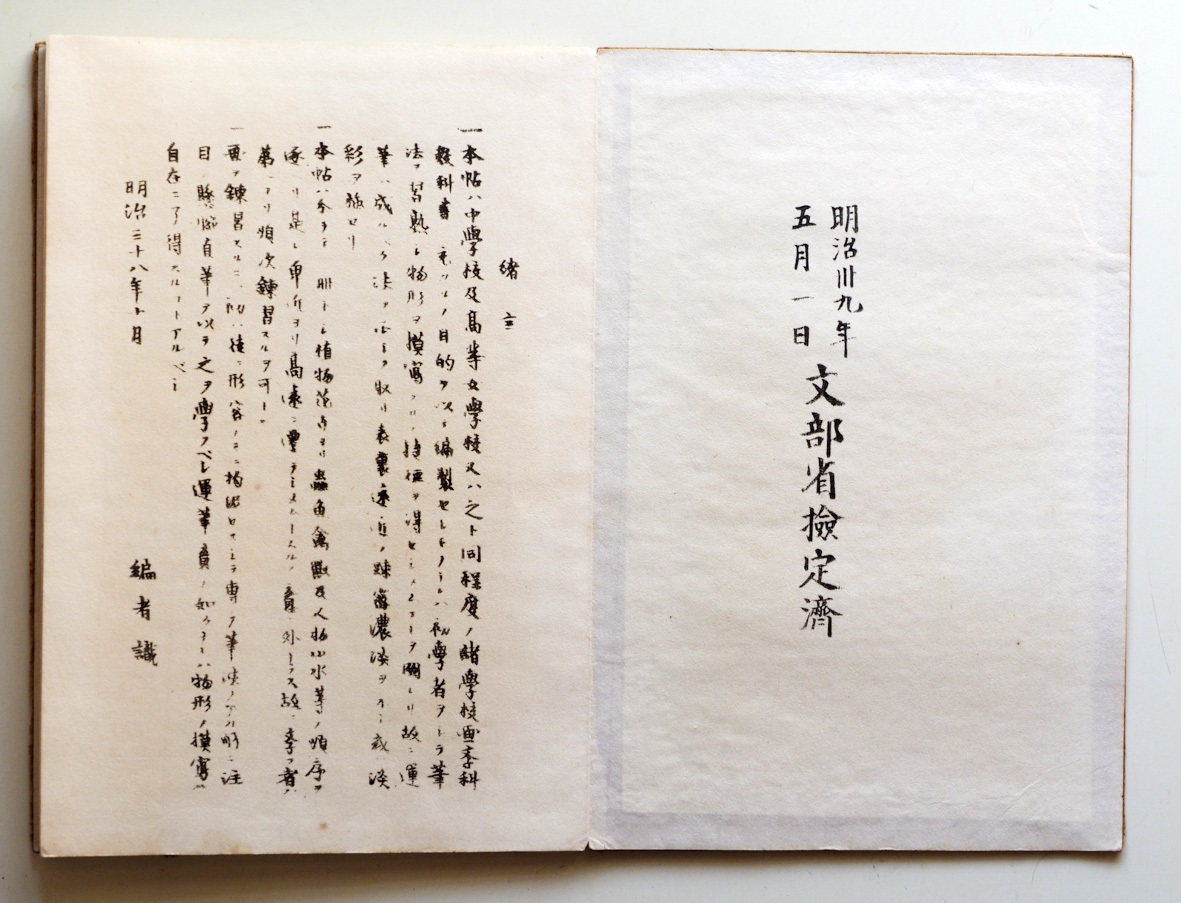 明治卅九年
五月一日
文部省檢定濟
緒言
一本帖ハ中學校及高等女學校又ハ之ト同程度ノ諸學校畫學科
敎科書ニ充ツルノ目的ヲ以テ編製セシモノニシテ初學者ヲシテ筆
法ヲ習熟シ物形ヲ摸寫スルノ技術ヲ得セシメンコトヲ圖レリ故ニ運
筆ハ成ルベク法ヲ正シキニ取リ表裏遠近ノ疎密濃淡ヲ示シ或淡
彩ヲ施セリ
一本帖ハ分チテ 冊トシ植物花卉ヨリ蟲魚禽獸及人物山水等ノ順序ヲ
逐ヒ是レ卑近ヨリ高遠ニ 意ニ外ナラス故ニ學者
第一ヨリ順次鍊習スルヲ可トス
一畫ヲ鍊習スルニハ初ハ徒ニ形容ノミニ拘泥セスシテ專ラ筆法ノアル所ニ注
目シ懸腕直筆ヲ以テ之ヲ學フベシ運筆意ノ如クナレハ物形ノ摸寫ハ
自在ニ了得スルコトアルベシ
明治三十八年十月
編者識